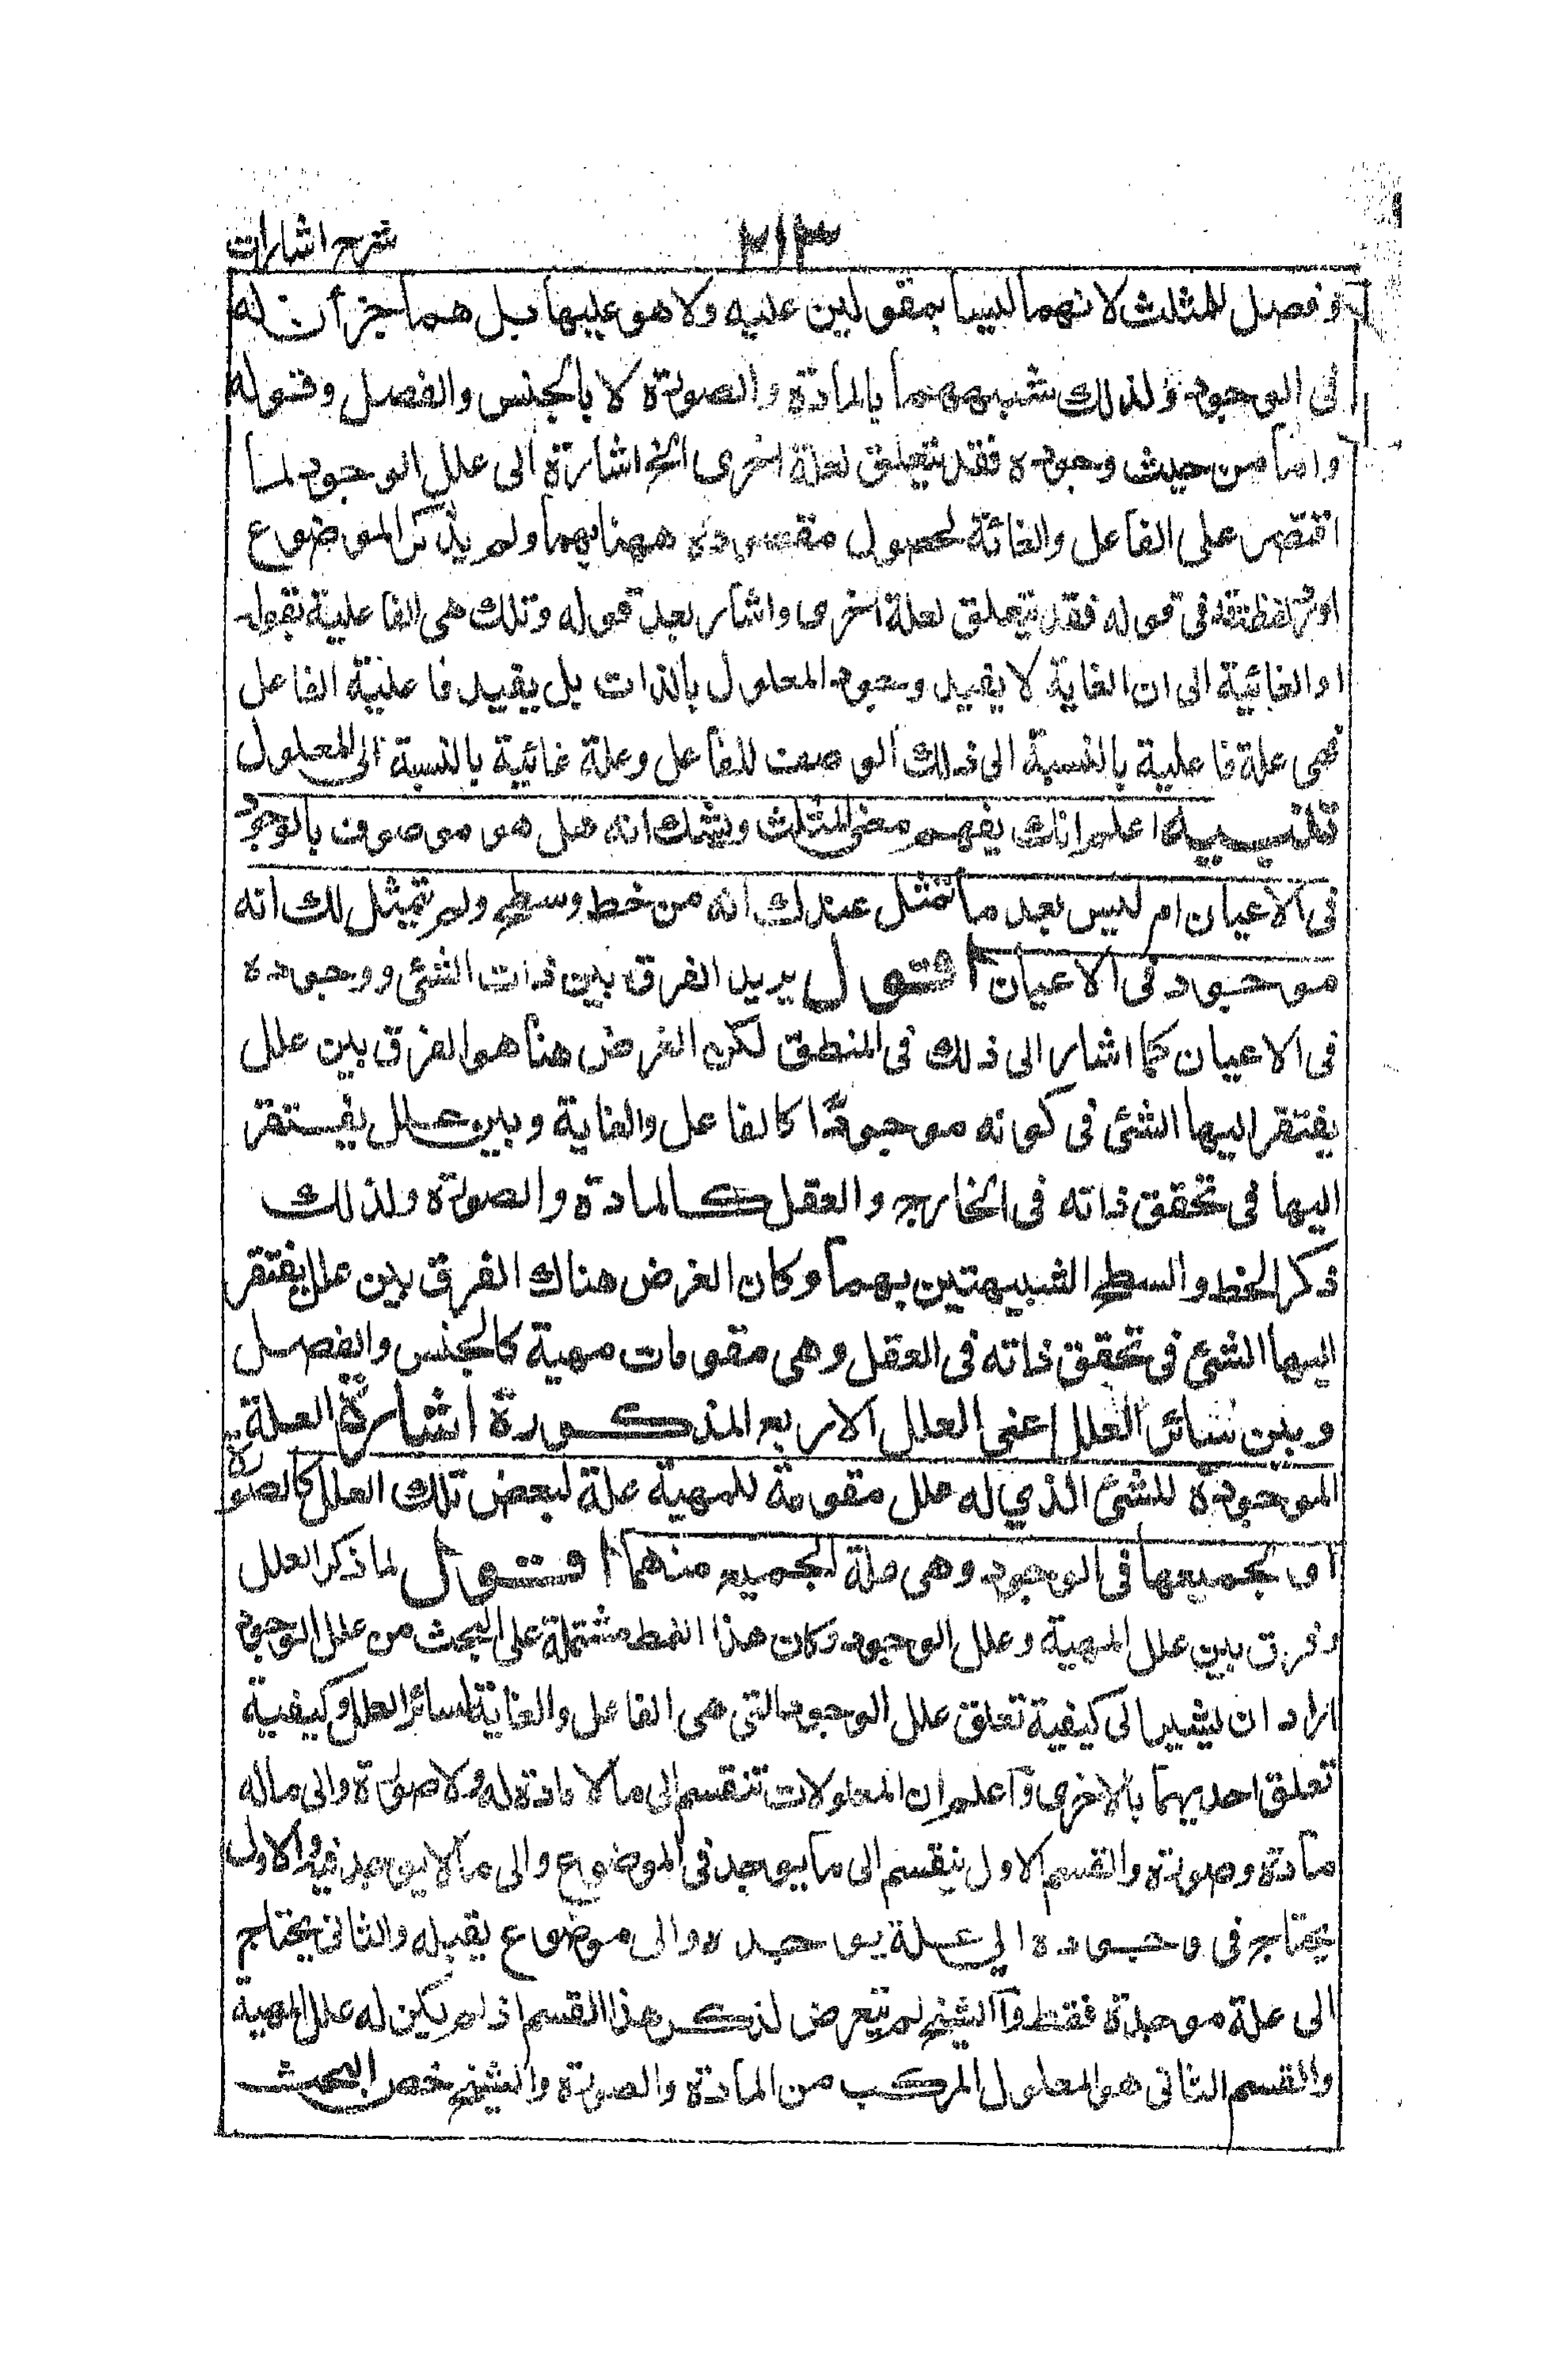 شرح اشارات
٣١٣
وفصل للمثلث لانهما ليسا بمقولين عليه ولا هو عليهما بل هما جزأن له
فى الوجود ولذلك شبههما بالمادة والصورة لا بالجنس والفصل وقوله
واما من حيث وجوده فقد يتعلق لعلة اخرى الخ اشارة الى علل الوجود لما
اقتصر على الفاعل والغائة لحصول مقصوده ههنا بهما ولم يذكر الموضوع
لفظة قد فى قوله فقد يتعلق لعلة اخرى واشار بعد قوله وتلك هى الفاعلية بقوله
او الغائية الى ان الغاية لا يفيد وجود المعلول بالذات بل يفيد فاعلية الفاعل
فهى علة فاعلية بالنسبة الى ذلك الوصف للفاعل وعلة غائية بالنسبة الى المعلول
تنبيه اعلم انك يفهم معنى المثلث وتشك انه هل هو موصوف بالوجود
فى الاعيان ام ليس بعد ما تمثل عندك انه من خط وسطح ولم تمثل لك انه
موجود فى الاعيان اقول يريد الفرق بين ذات الشئ ووجوده
فى الاعيان كما اشار الى ذلك فى المنطق لكن الغرض هنا هو الفرق بين علل
يفتقر اليها الشئ فى كونه موجودًا كالفاعل والغاية وبين علل يفتقر
اليها فى تحقق ذاته فى الخارج والعقل كالمادة والصورة ولذلك
ذكر الخط والسطح الشبيهتين بهما وكان الغرض هناك الفرق بين علل يفتقر
اليها الشئ فى تحقق ذاته فى العقل وهى مقومات مهية كالجنس والفصل
وبين سائر العلل اعنى العلل الاربع المذكورة اشارة العلة
الموجودة للشئ الذي له علل مقومة للمهية علة لبعض تلك العلل كالصورة
او لجميعها فى الوجود وهى علة الجميع منهما اقول لما ذكر العلل
وفرق بين علل المهية وعلل الوجود وكان هذا النمط مشتملة على البحث من علل الوجود
اراد ان يشير الى كيفية تعلق علل الوجود التى هى الفاعل والغاية لسائر العلل وكيفية
تعلق احديهما بالاخرى واعلم ان المعلولات تنقسم الى ما لا مادة له ولا صورة والى ماله
مادة وصورة والقسم الاول ينقسم الى ما يوجد فى الموضوع والى ما لا يوجد فيه والاول
يحتاج فى وجوده الى علة يوجده والى موضوع يقبله والثانى يحتاج
الى علة موجدة فقط والشيخ لم يتعرض لذكر هذا القسم اذ لم يكن له علل المهية
والقسم الثانى هو المعلول المركب من المادة والصورة والشيخ خص البحث